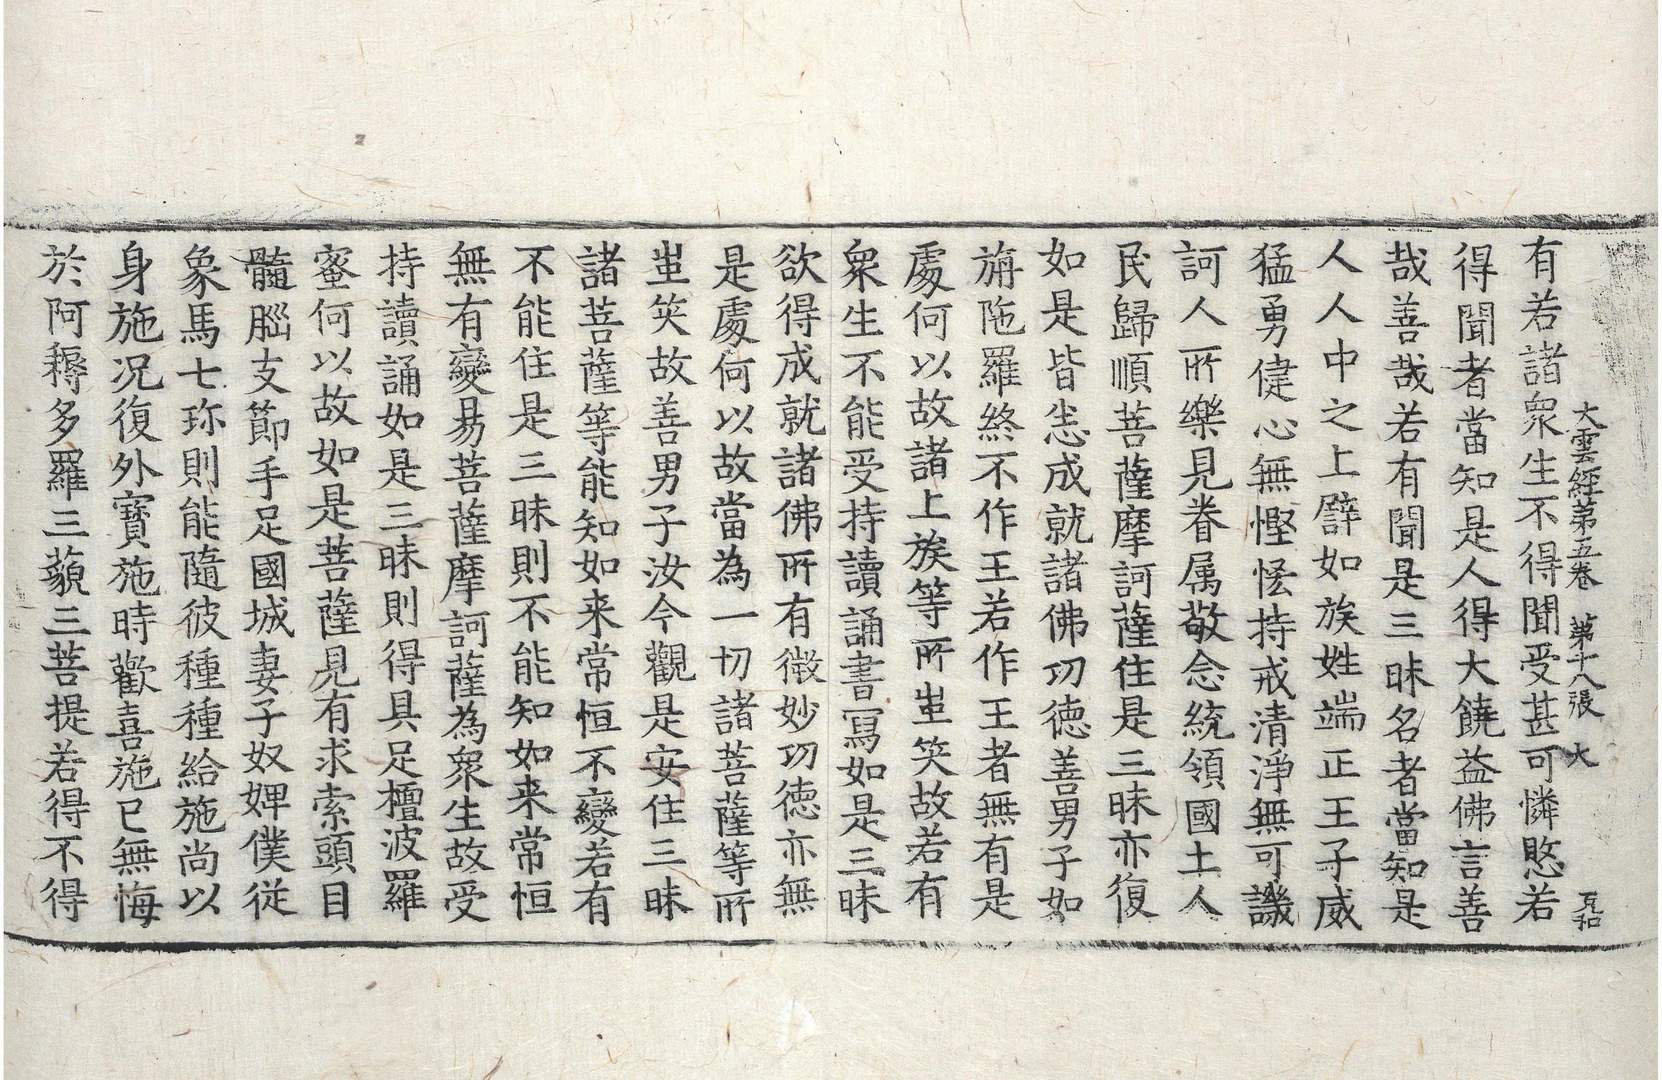 大雲經第五卷 第十八張 大
有若諸衆生不得聞受甚可憐愍若
得聞者當知是人得大饒益佛言善
哉善哉若有聞是三昧名者當知是
人人中之上譬如族姓端正王子威
猛勇徤心無慳悋持戒清淨無可譏
訶人所樂見眷属敬念統領國土人
民歸順菩薩摩訶薩住是三昧亦復
如是皆悉成就諸佛功德善男子如
旃陁羅終不作王若作王者無有是
處何以故諸上族等所蚩笑故若有
衆生不能受持讀誦書寫如是三昧
欲得成就諸佛所有微妙功徳亦無
是處何以故當為一切諸菩薩等所
蚩笑故善男子汝今觀是安住三昧
諸菩薩等能知如来常恒不變若有
不能住是三昧則不能知如来常恒
無有變易菩薩摩訶薩為衆生故受
持讀誦如是三昧則得具足檀波羅
蜜何以故如是菩薩見有求索頭目
髓腦支節手足國城妻子奴婢僕従
象馬七珎則能隨彼種種給施尚以
身施况復外寶施時歡喜施已無悔
於阿耨多羅三藐三菩提若得不得